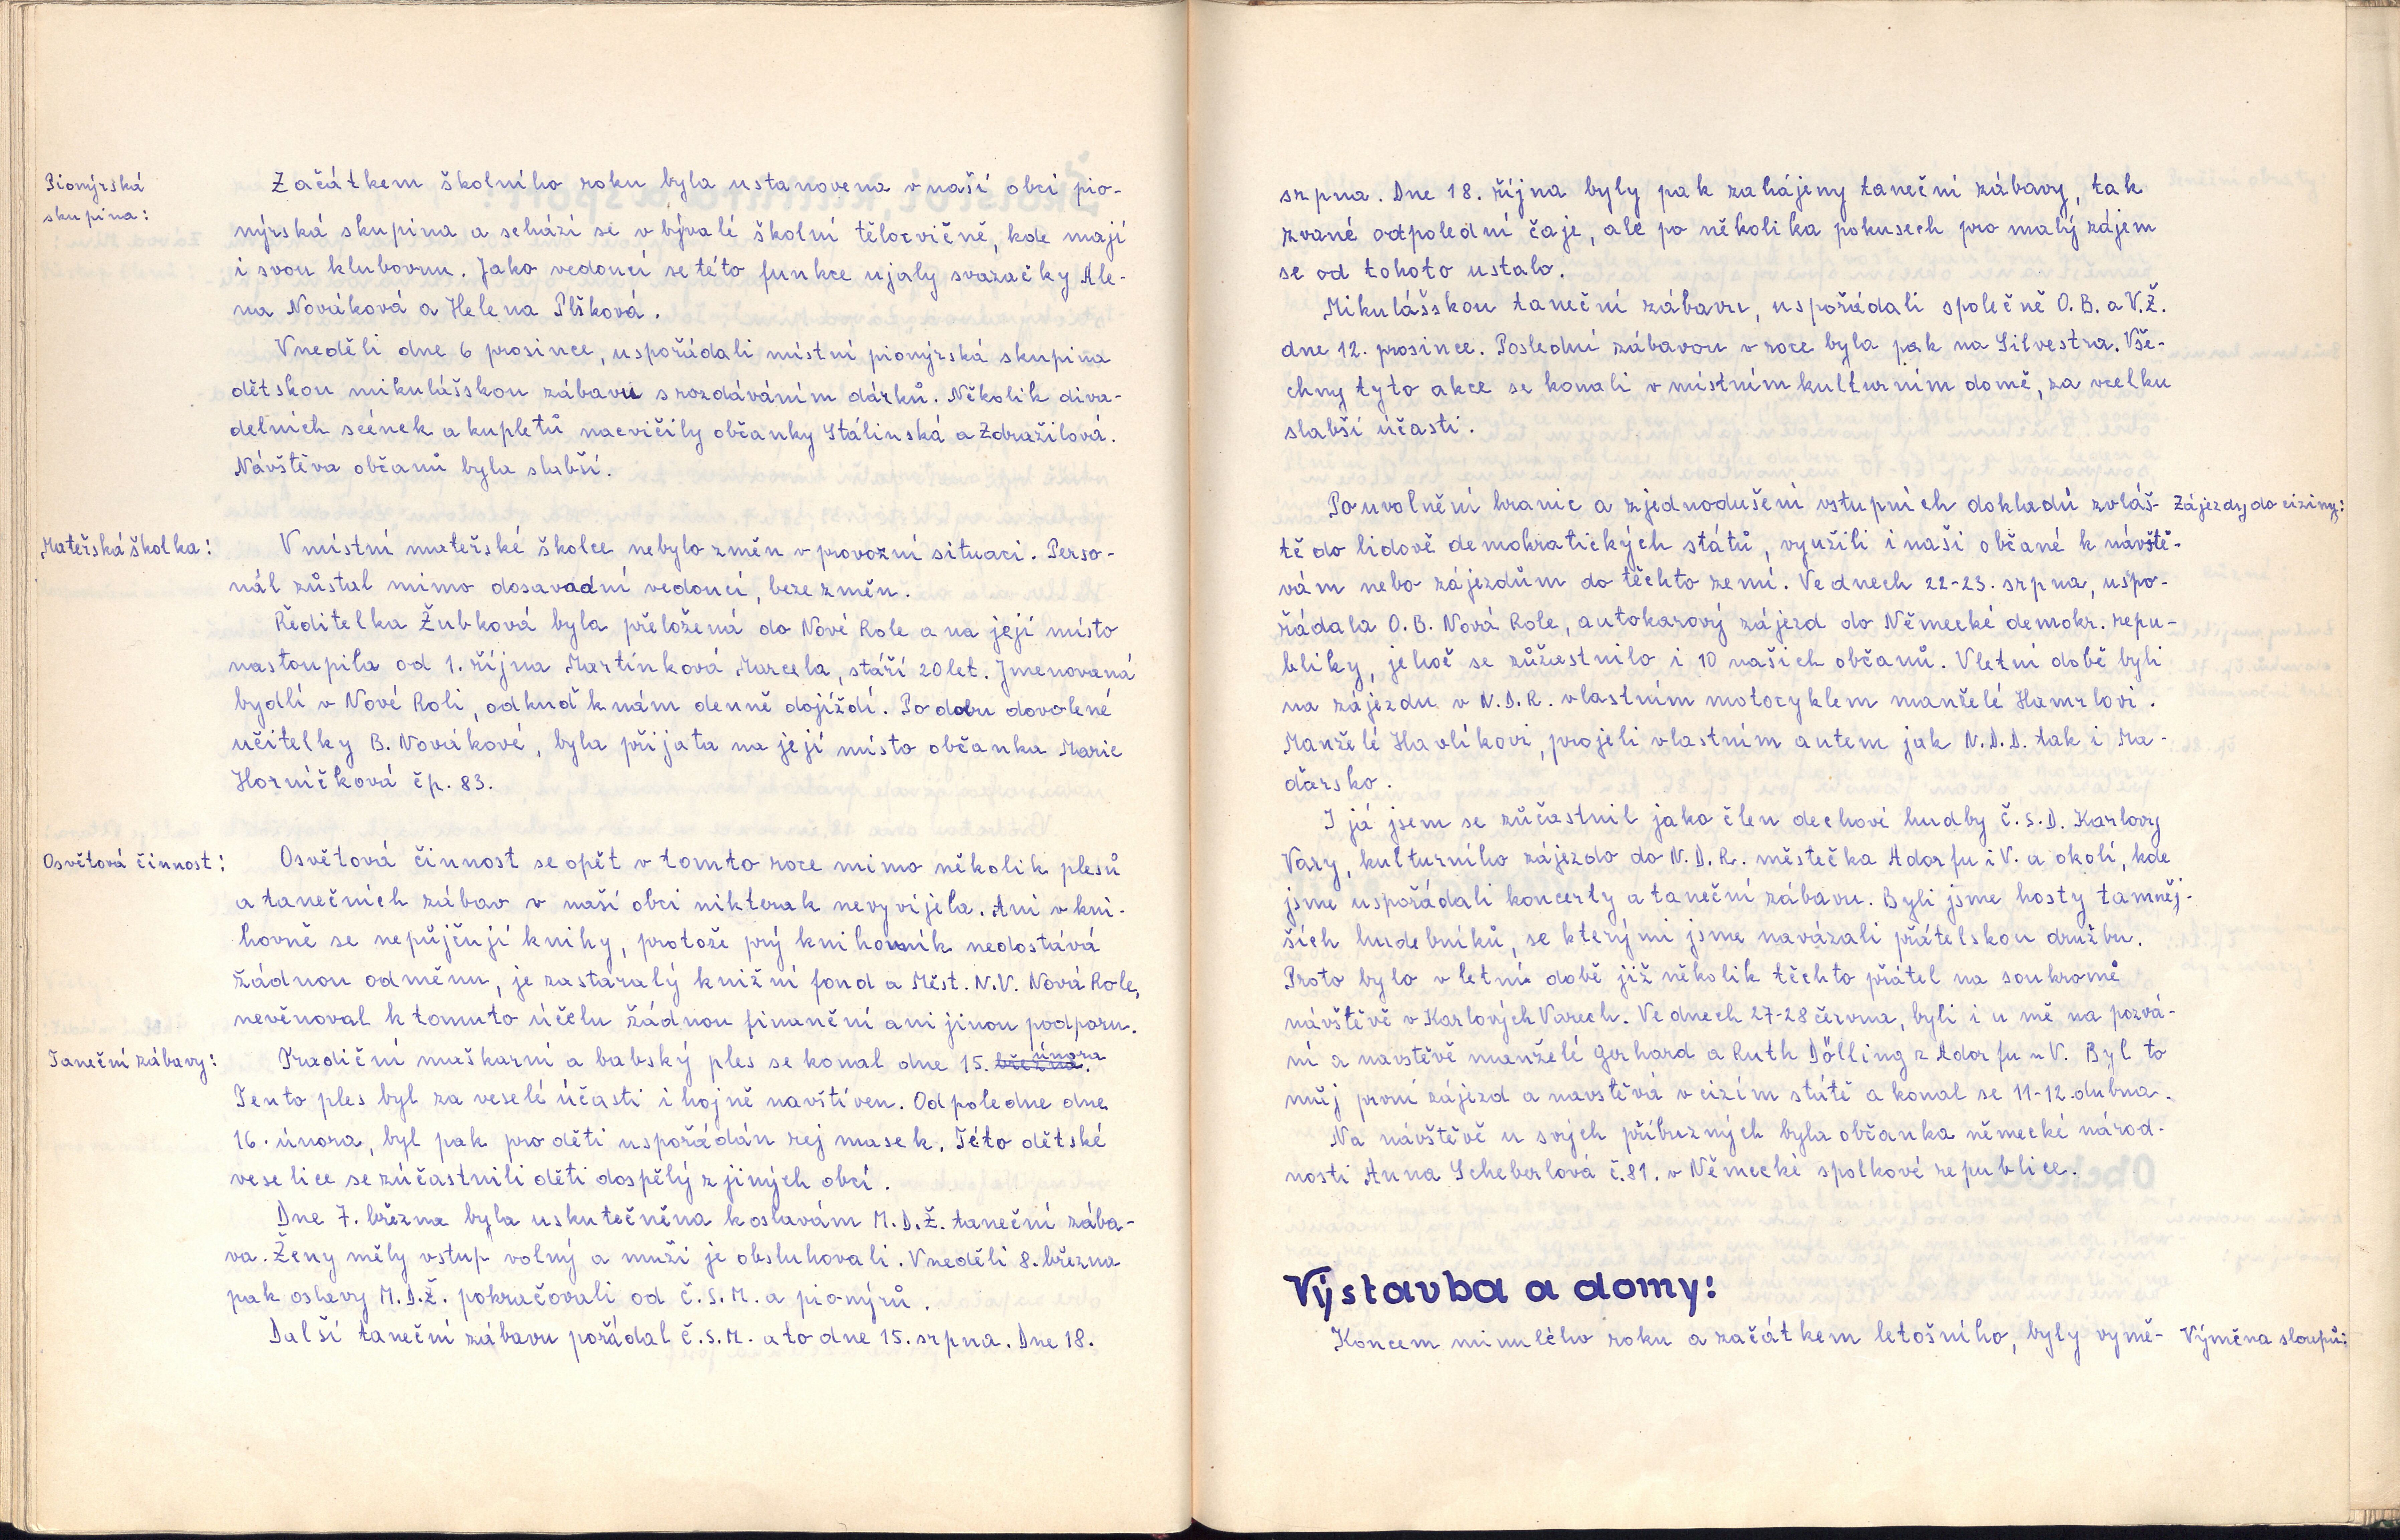 Pionýrská
skupina:
Začátkem školního roku byla ustanovena v naší obci pio-
nýrská skupina a schází se v bývalé školní tělocvičně, kde mají
i svou klubovnu. Jako vedoucí se této funkce ujaly svazačky Ale-
na Nováková a Helena Plšková.
V neděli dne 6 prosince, uspořádali místní pionýrská skupina
dětskou mikulášskou zábavu s rozdáváním dárků. Několik diva-
delních scének a kupletů nacvičily občanky Stálinská a Zdražilová.
Návštěva občanů byla slabší.
Mateřská školka:
V místní mateřské školce nebylo změn v provozní situaci. Perso-
nál zůstal mimo dosavadní vedoucí, beze změn.
Ředitelka Žubková byla přeložená do Nové Role a na její místo
nastoupila od 1. října Martínková Marcela, stáří 20 let. Jmenovaná
bydlí v Nové Roli, odkuď k nám denně dojíždí. Po dobu dovolené
učitelky B. Novákové, byla přijata na její místo občanka Marie
Horníčková čp. 83.
Osvětová činnost:
Osvětová činnost se opět v tomto roce mimo několik plesů
a tanečních zábav v naší obci nikterak nevyvíjela. Ani v kni-
hovně se nepůjčují knihy, protože prý knihovník nedostává
žádnou odměnu, je zastaralý knižní fond a Měst. N.V. Nová Role,
nevěnoval k tomuto účelu žádnou finanční ani jinou podporu.
Taneční zábavy:
Tradiční maškarní a babský ples se konal dne 15. března. února
Tento ples byl za veselé účasti i hojně navštíven. Odpoledne dne
16. února, byl pak pro děti uspořádán rej masek. Této dětské
veselice se zúčastnili děti dospělý z jiných obcí.
Dne 7. března byla uskutečněna k oslavám M.D.Ž. taneční zába-
va. Ženy měly vstup volný a muži je obsluhovali. V neděli 8. března
pak oslavy M.D.Ž. pokračovali od Č.S.M. a pionýrů.
Další taneční zábavu pořádal Č.S.M. a to dne 15. srpna. Dne 18.
srpna. Dne 18. října byly pak zahájeny taneční zábavy, tak
zvané odpolední čaje, ale po několika pokusech pro malý zájem
se od tohoto ustalo.
Mikulášskou taneční zábavu, uspořádali společně O.B. a V.Ž.
dne 12. prosince. Poslední zábavou v roce byla pak na Silvestra. Vše-
chny tyto akce se konali v místním kulturním domě, za vcelku
slabší účasti.
Po uvolnění hranic a zjednodušení vstupních dokladů zvláš-
Zájezdy do ciziny:
tě do lidově demokratických států, využili i naši občané k návště-
vám nebo zájezdům do těchto zemí. Ve dnech 22-23. srpna, uspo-
řádala O.B. Nová Role, autokarový zájezd do Německé demokr. repu-
bliky, jehož se zůžastnilo i 10 našich občanů. V letní době byli
na zájezdu v N.D.R. vlastním motocyklem manželé Hamrlovi.
Manželé Havlíkovi, projeli vlastním autem jak N.D.D. tak i Ma-
ďarsko.
I já jsem se zůčastnil jako člen dechové hudby Č.S.D. Karlovy
Vary, kulturního zájezdo do N.D.R. městečka Adorfu i V. a okolí, kde
jsme uspořádali koncerty a taneční zábavu. Byli jsme hosty tamněj-
ších hudebníků, se kterými jsme navázali přátelskou družbu.
Proto bylo v letní době již několik těchto přátel na soukromé
návštěvě v Karlových Varech. Ve dnech 27-28 června, byli i u mě na pozvá-
ní a navštěvě manželé Gerhard a Ruth Dölling z Adorfu u V. Byl to
můj první zájezd a navštěvá v cizím státě a konal se 11-12. dubna.
Na návštěvě u svých příbuzných byla občanka německé národ-
nosti Anna Scheberlová č.81. v Německé spolkové republice.
Výstavba a domy:
Koncem minulého roku a začátkem letošního, byly vymě-
Výměna sloupů: